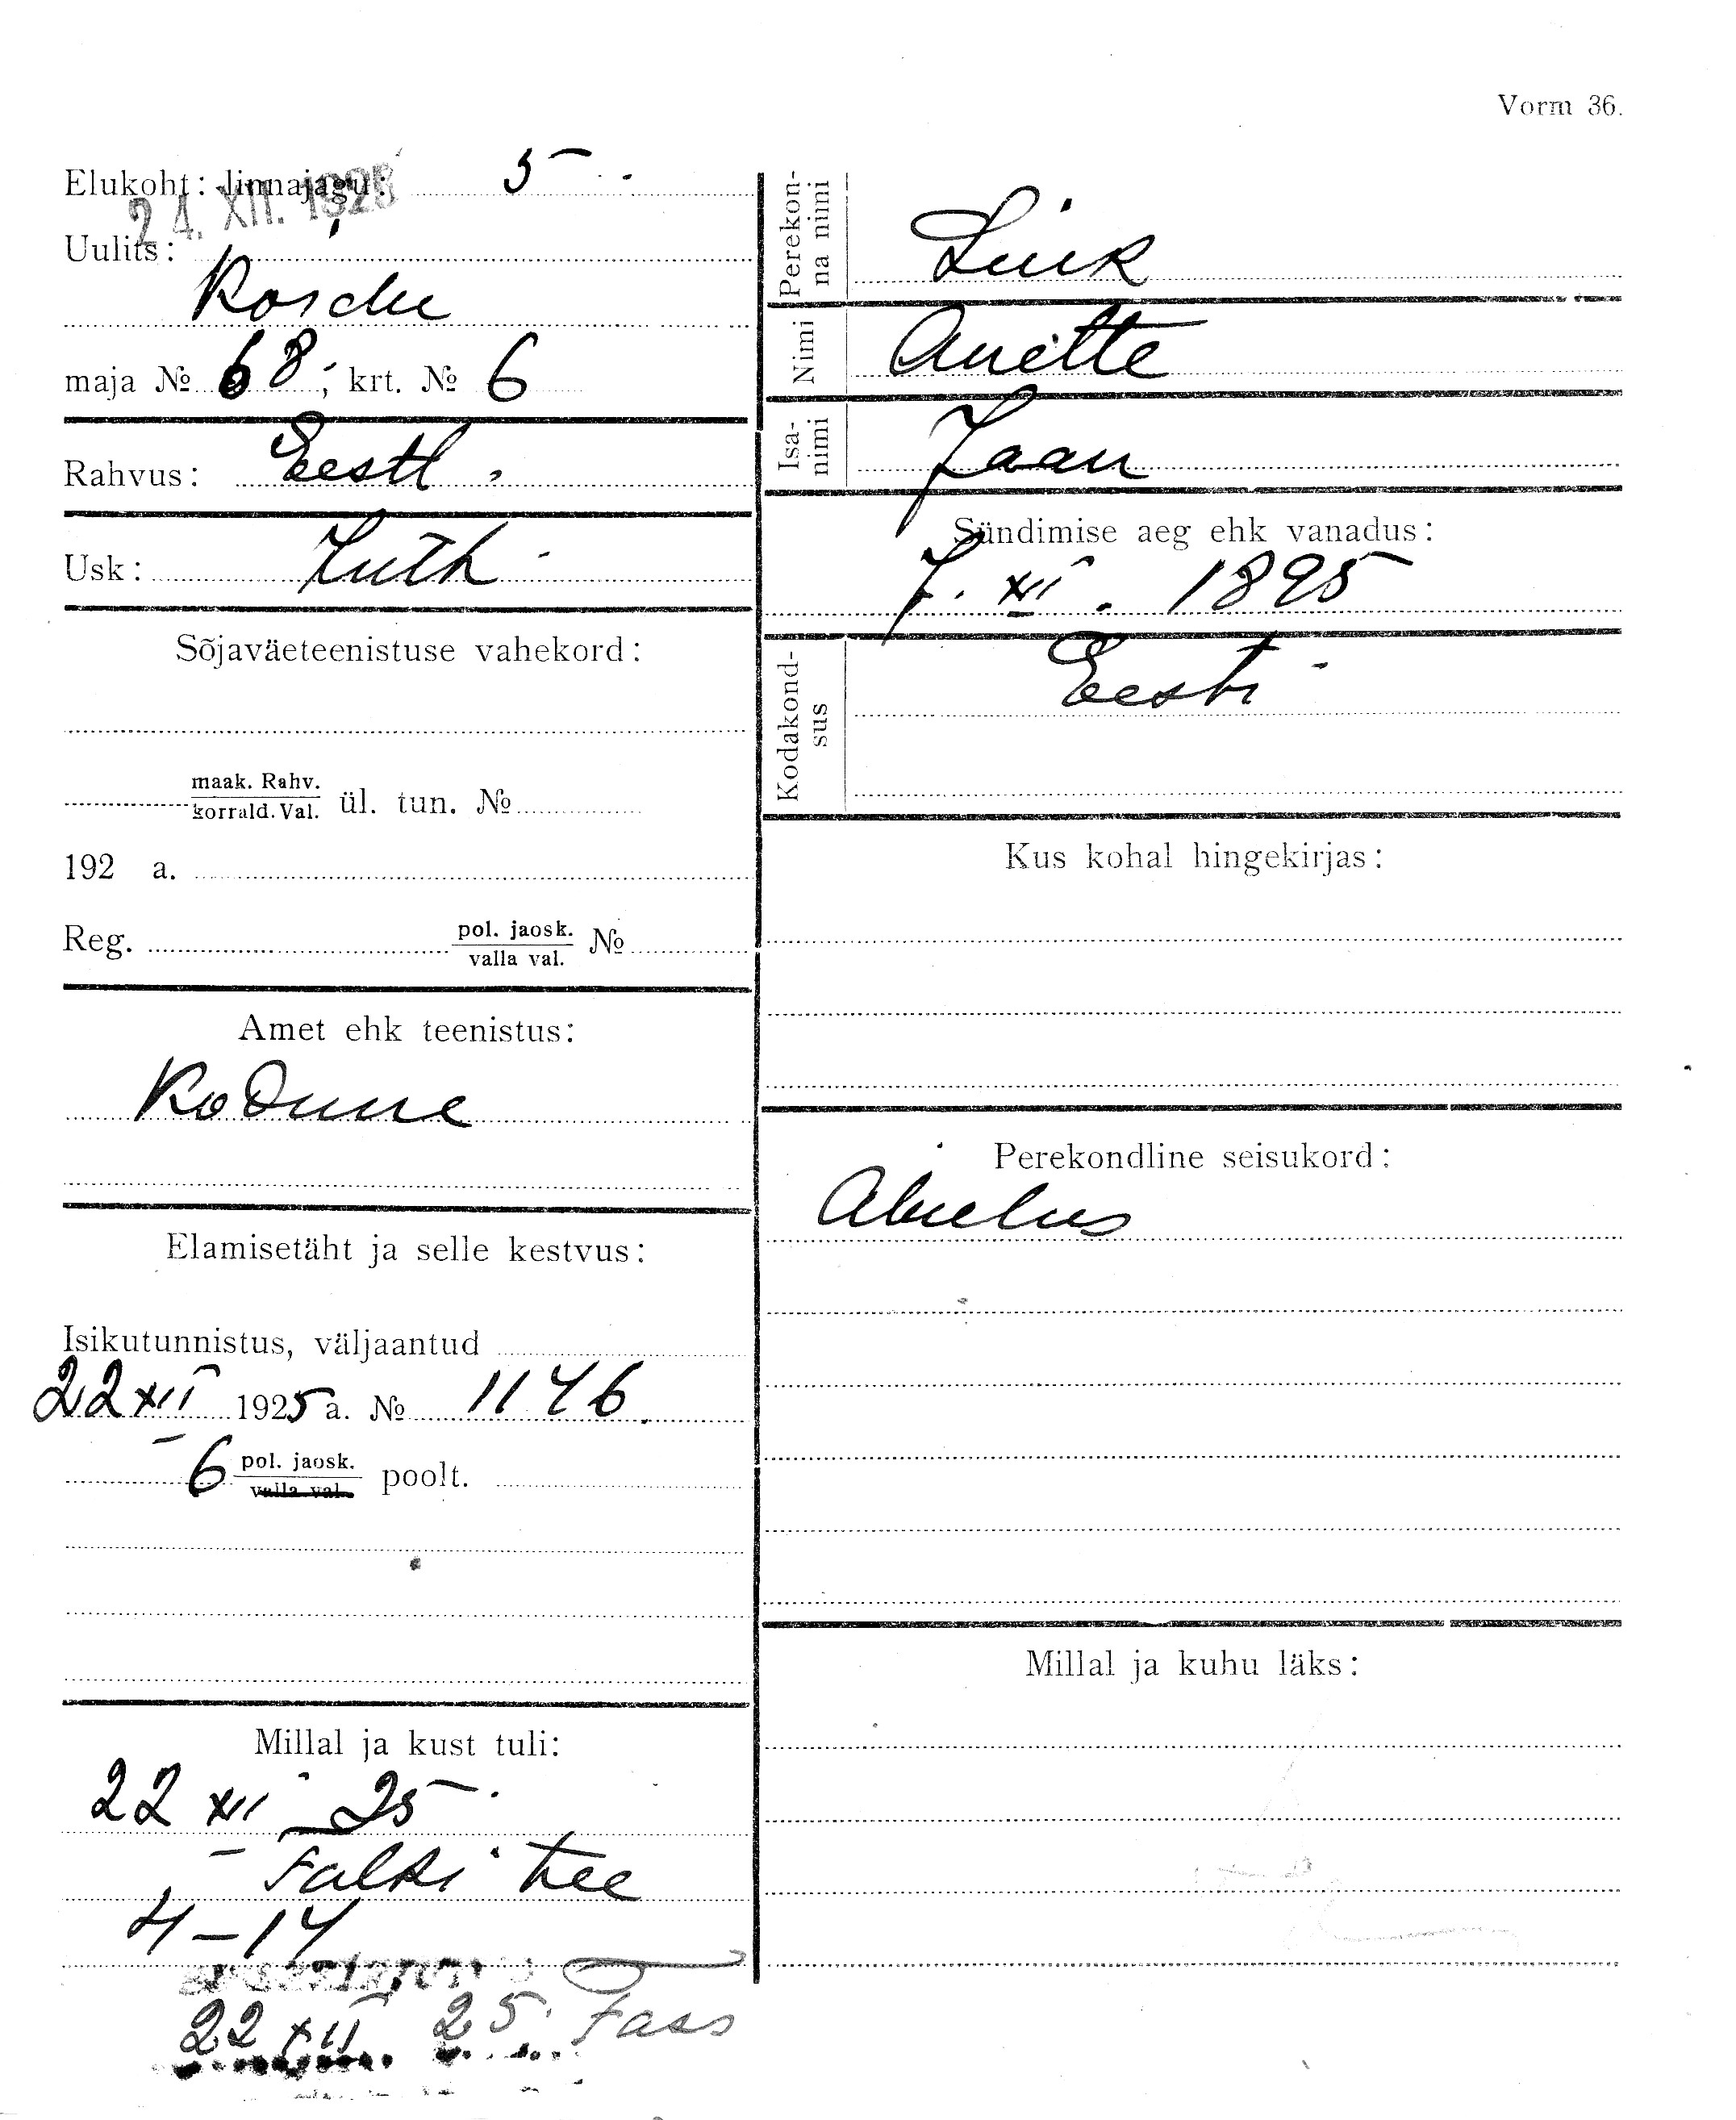 Vorm 36.
Elukoht: linnajagu: 5
24. XII. 1925
Uulits:
Koidu
maja № 68; krt. № 6
Rahvus: Eestl.
Usk: Luth
Sõjaväeteenistuse vahekord:
maak. Rahv.
korrald. Val. ül. tun. №
192 a.
Reg. pol. jaosk.
valla val. №
Amet ehk teenistus:
Kodune
Elamisetäht ja selle kestvus:
Isikutunnistus, väljaantud
22 XII 1925 a. № 1146.
6 pol. jaosk.
valla val. poolt.
Millal ja kust tuli:
22 XII 25
Falki tee
4-14
22 XII 25.
Perekonna nimi
Link
Nimi
Anette
Isanimi
Jaan
Sündimise aeg ehk vanadus:
7. XII. 1895
Kodakondsus
Eesti
Kus kohal hingekirjas:
Perekondline seisukord:
Abielus
Millal ja kuhu läks: